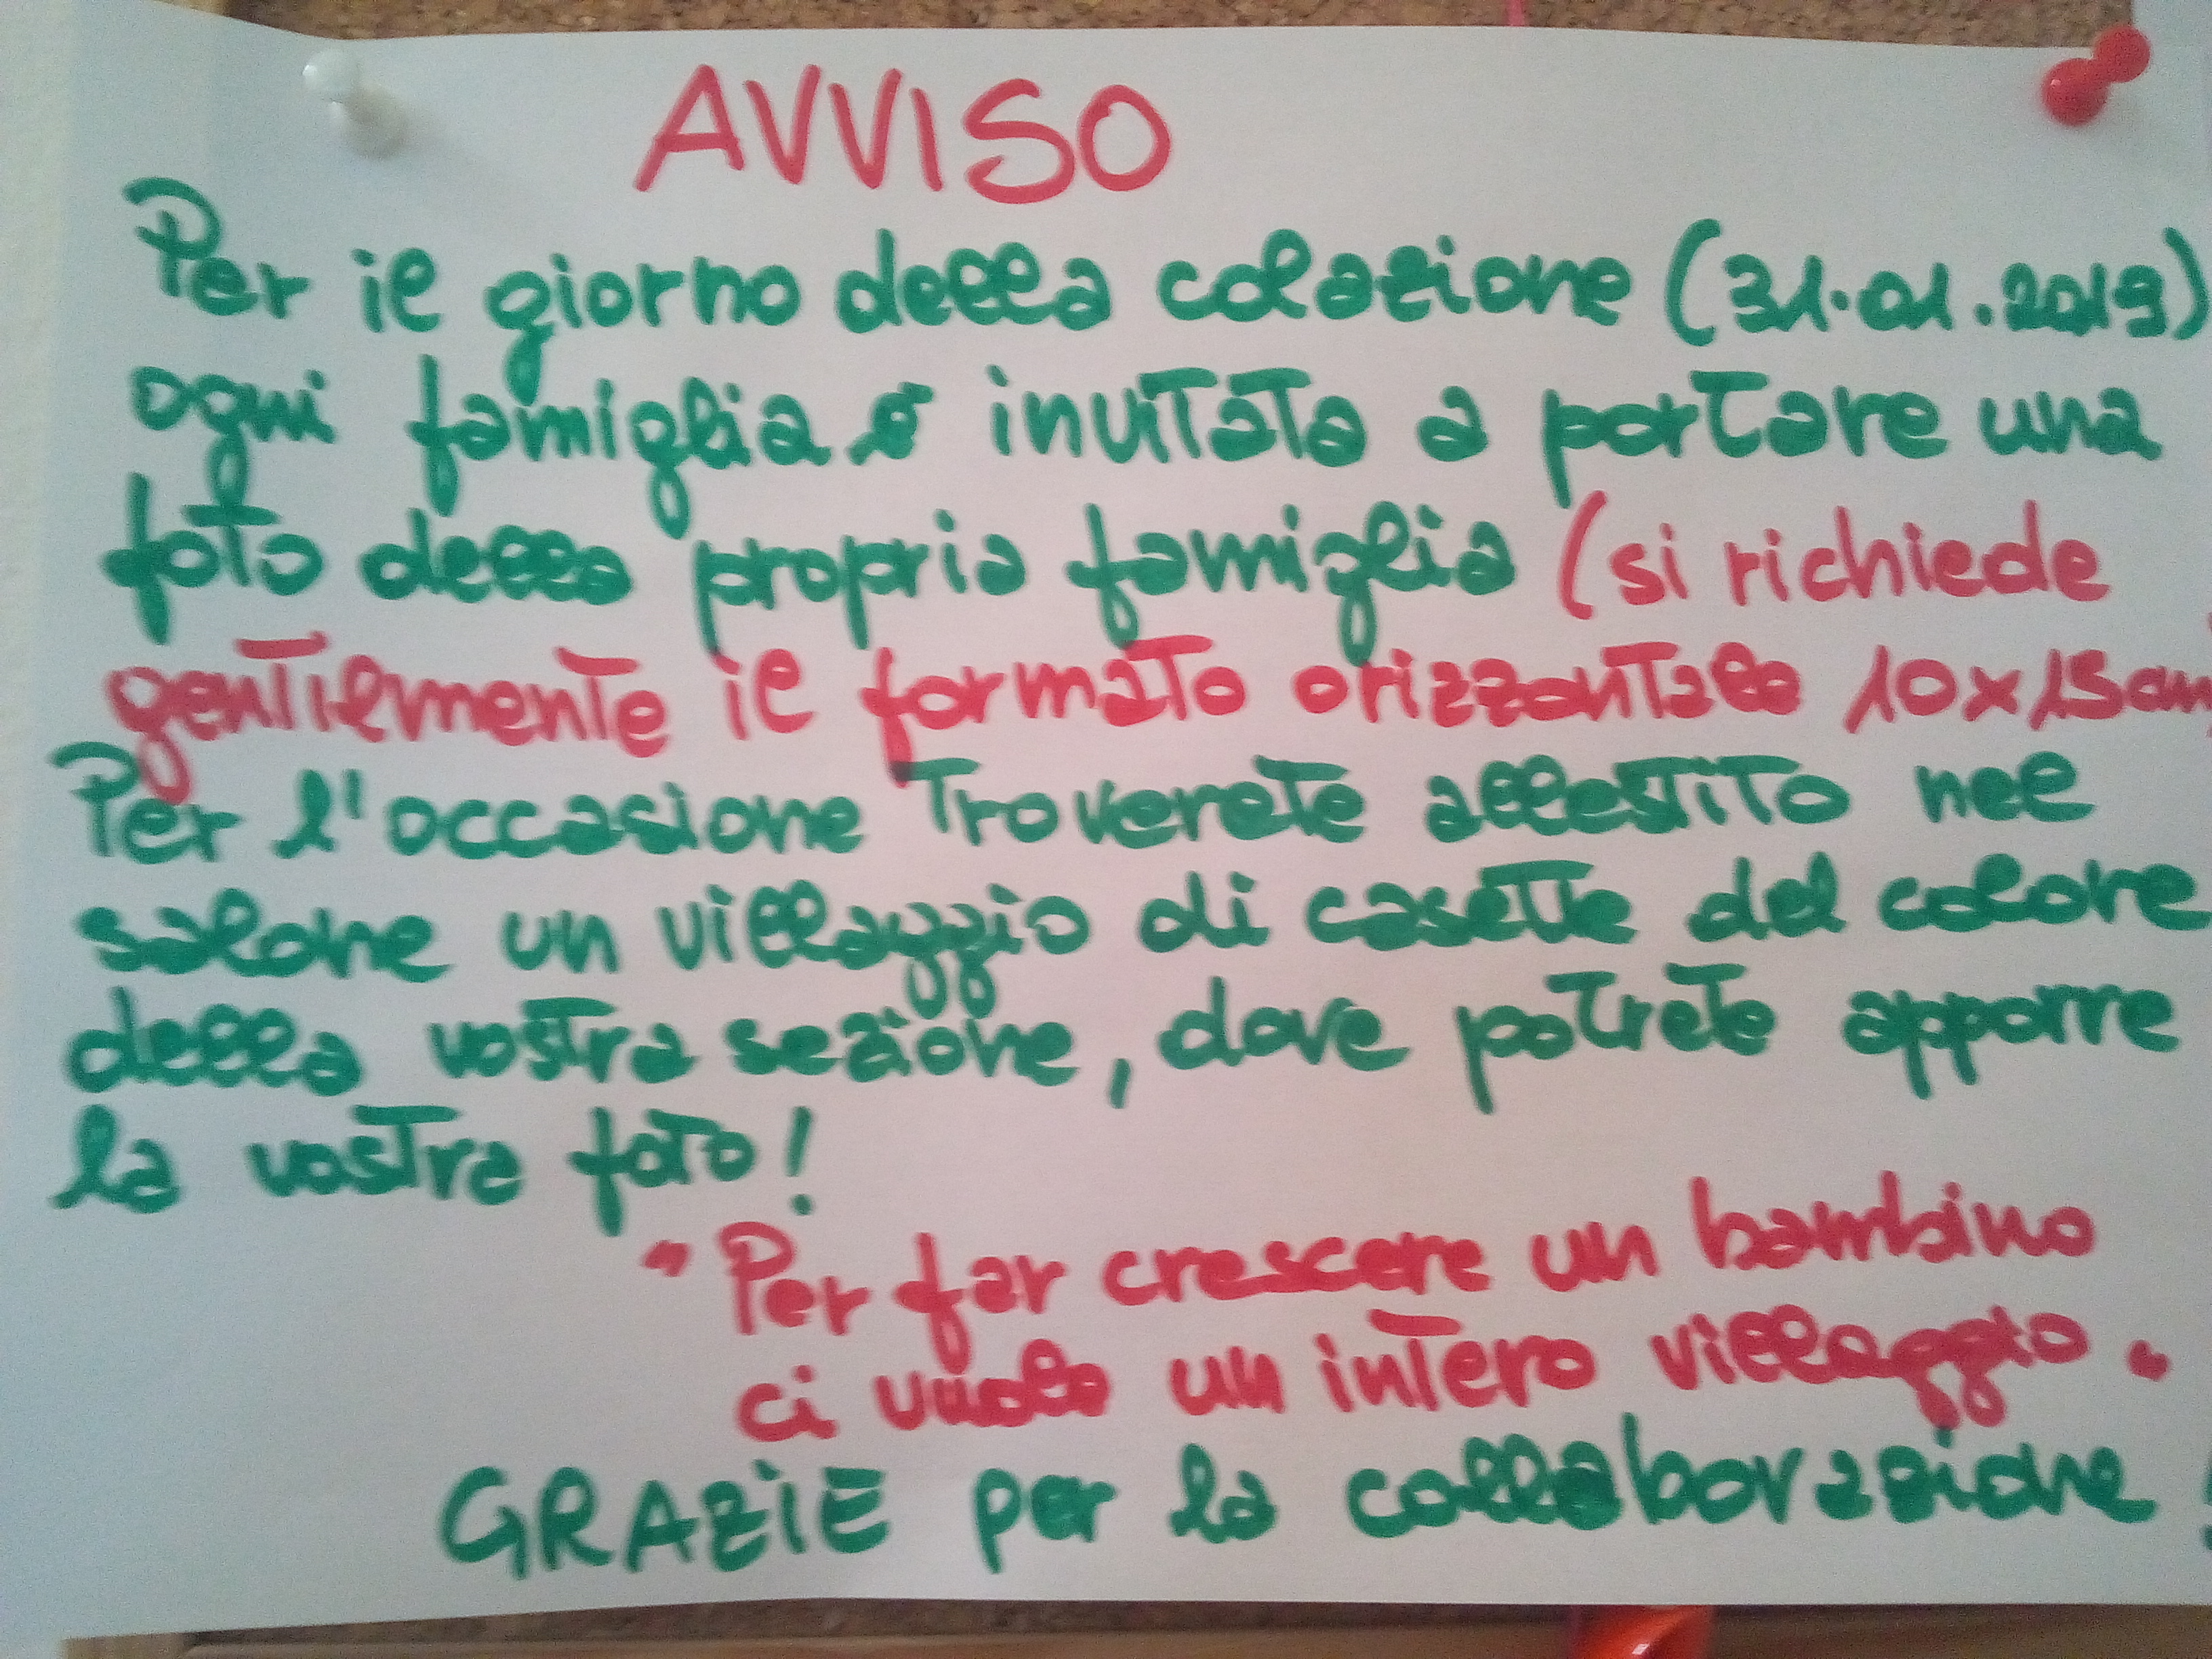 AVVISO
Per il giorno della colazione (31.01.2019)
ogni famiglia è invitata a portare una
foto della propria famiglia (si richiede
gentilmente il formato orizzontale 10x15cm
Per l'occasione troverete allestito nel
salone un villaggio di casette del colore
della vostra sezione, dove potrete apporre
la vostra foto!
"Per far crescere un bambino
ci vuole un intero villaggio."
GRAZIE per la collaborazione!